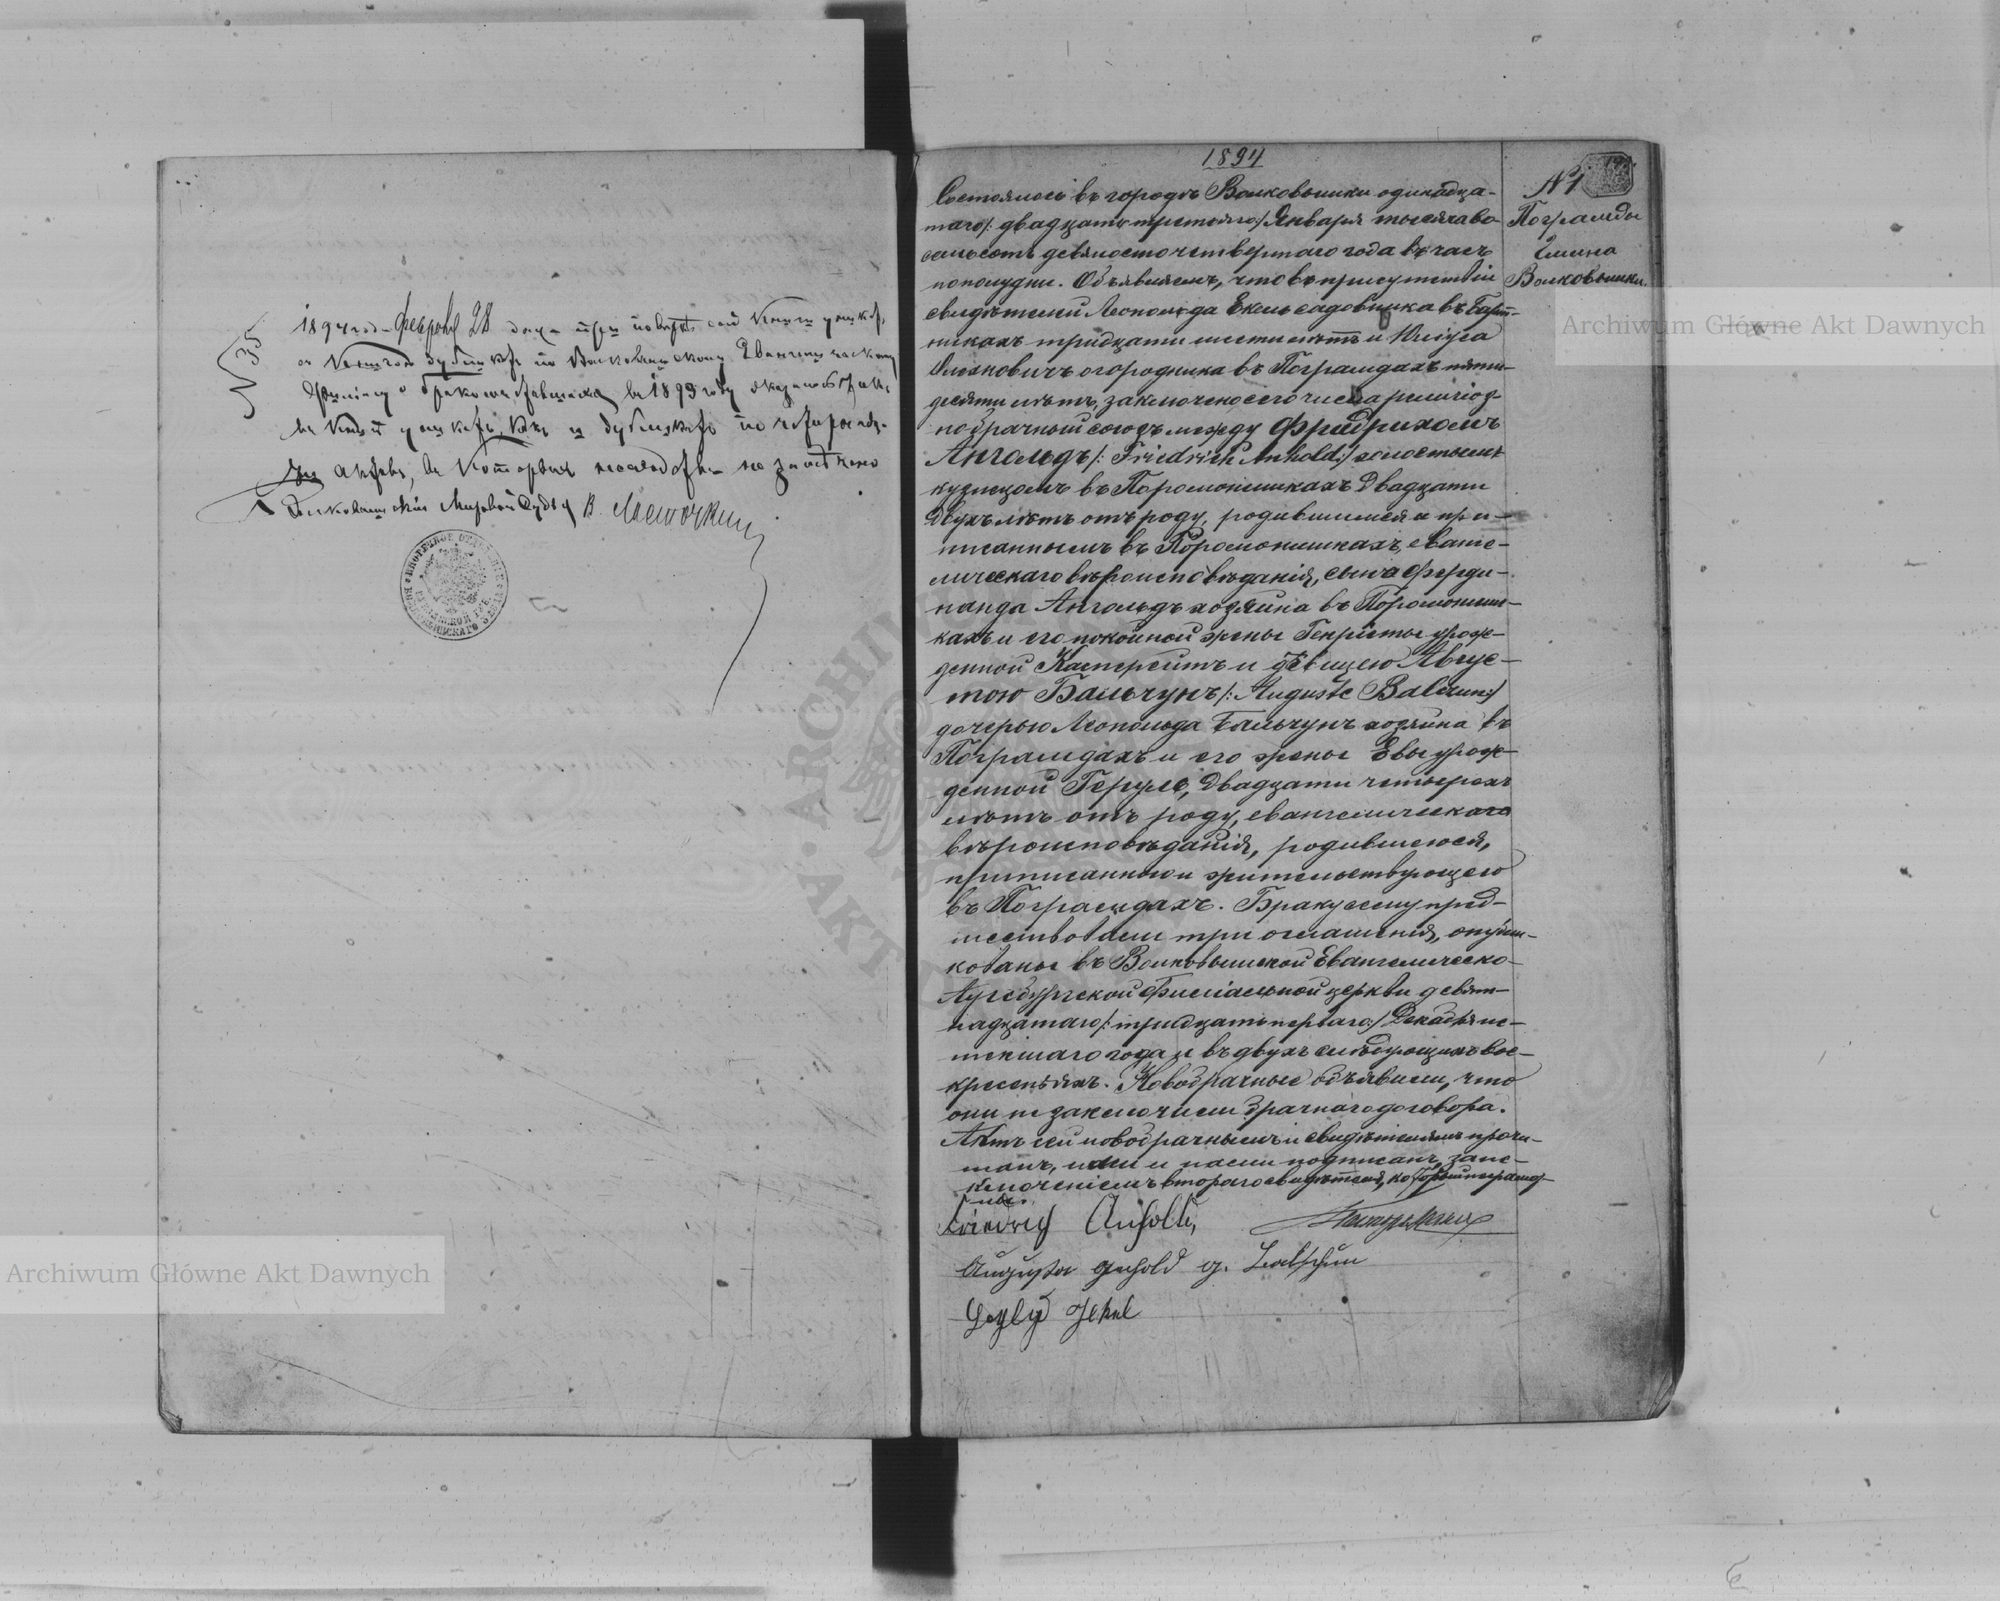 1894 года Февраля 28 дня при повѣркѣ сей книги уникат
съ книгою дубликатъ по Волковышскому Евангелическому
Филіалу о бракосочетавшихся за 1893 годъ оказалось
въ книгѣ уникатъ, такъ и дубликатъ по четыренад-
актовъ, въ которыхъ не замѣчено
Волковышскій Мировой Судья В.
1894
№ 1
Пограмды
Гмина
Волковышки.
Состоялось въ городѣ Волковышки одинадца-
таго /: двадцать третьяго :/ Января тысяча во-
семьсотъ девяносто четвертаго года въ часъ
пополудни. Объявляемъ, что въ присутствіи
свидѣтелей Леопольда Екель садовника въ Барт-
никахъ тридцати шести лѣтъ и Юліуса
огородника въ Пограмдахъ пяти-
десяти лѣтъ, заключенъ сего числа религіоз-
но брачный союзъ между Фридрихомъ
Ангольдъ /: Friedrich Anhold :/ холостымъ
кузнецомъ въ Поромонишкахъ двадцати
двухъ лѣтъ отъ роду, родившимся и при-
писаннымъ въ Поромонишкахъ, еванге-
лическаго вѣроисповѣданія, сына Ферди-
нанда Ангольдъ хозяина въ Поромониш-
кахъ и его покойной жены Генріеты урож-
денной Кастрейтъ и дѣвицею Авгус-
тою Бальчунъ /: Auguste Balczun :/
дочерью Леопольда Бальчунъ хозяина въ
Пограмдахъ и его жены Евы урож-
денной Геруль, двадцати четырехъ
лѣтъ отъ роду, евангелическаго
вѣроисповѣданія, родившеюся,
приписанною и жительствующею
въ Пограмдахъ. Браку сему пред-
шествовали три оглашенія, опубли-
кованы въ Волковышской Евангелическо-
Аугсбургской Филіальной церкви девят-
надцатаго /: тридцать перваго :/ Декабря ис-
текшаго года и въ двухъ слѣдующихъ вос-
кресеньяхъ. Новобрачные объявили, что
они не заключили брачнаго договора.
Актъ сей новобрачнымъ и свидѣтелямъ прочи-
танъ, ими и нами подписанъ, за ис-
ключеніемъ втораго свидѣтеля, который неграмот-
ный.
Friedrich Anhold,
Augusta Anhold g. Baltschun
Jekel
Archiwum Główne Akt Dawnych
Archiwum Główne Akt Dawnych